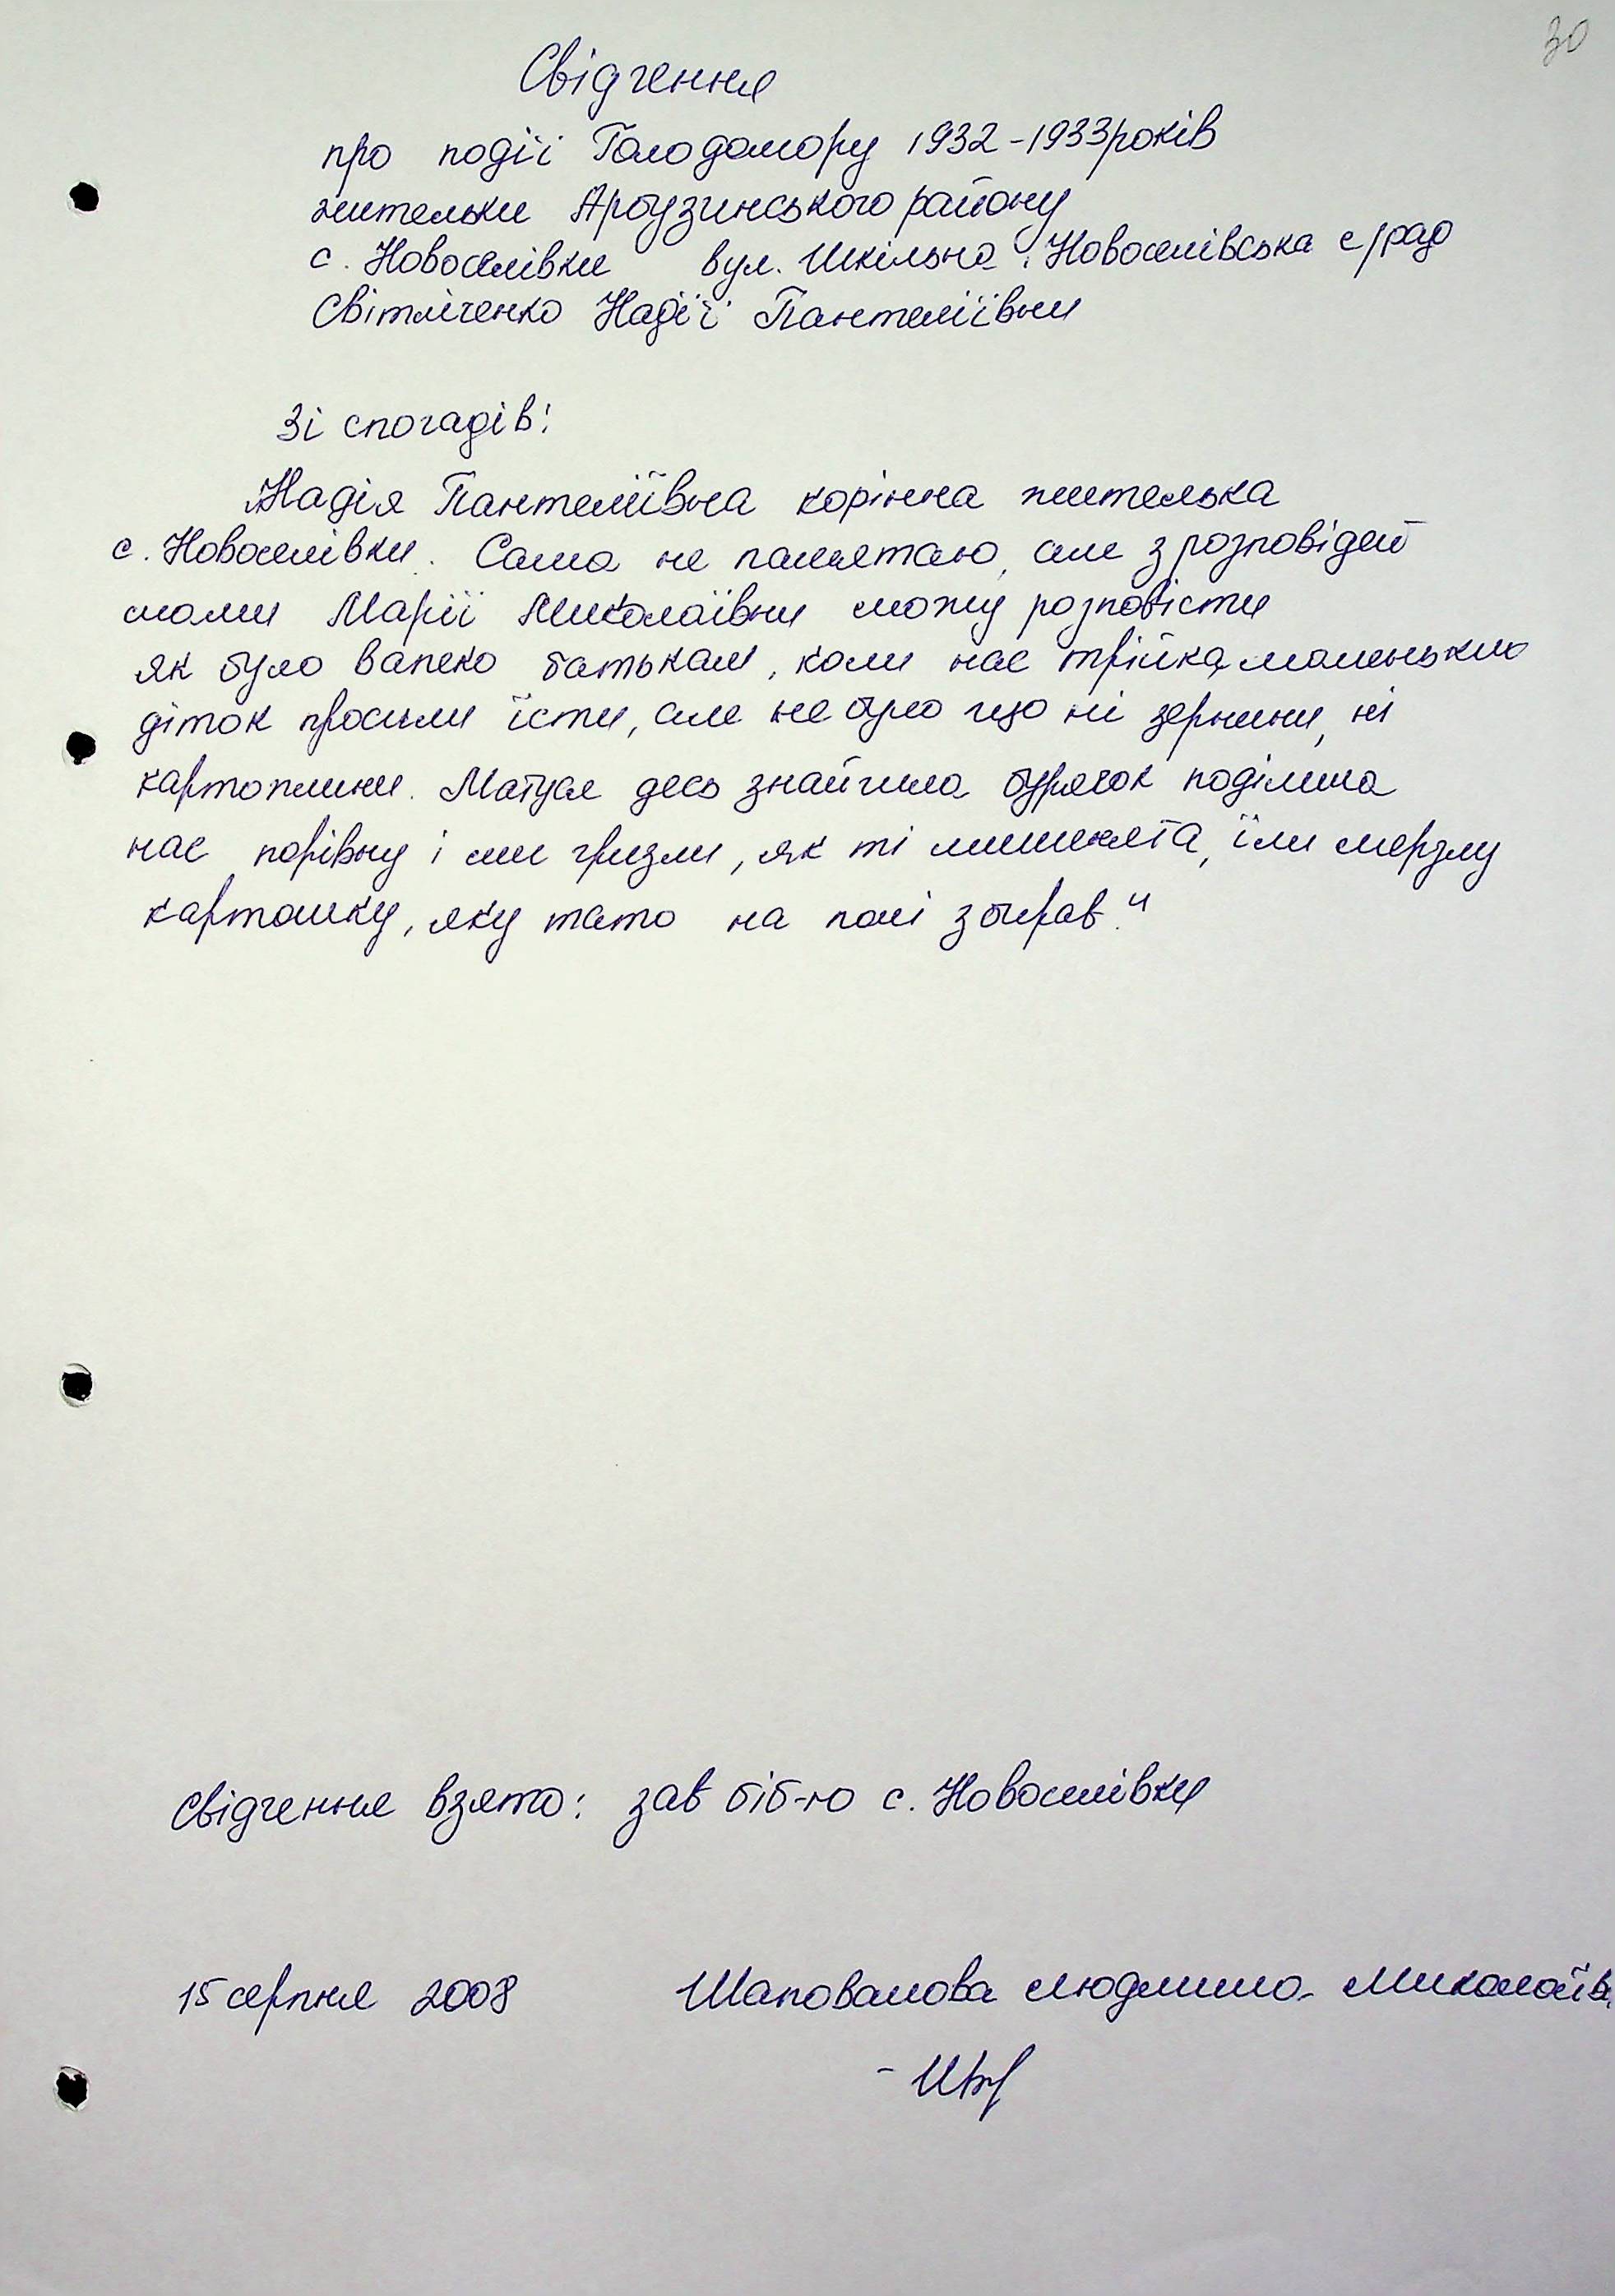 30
Свідчення
про події Голодомору 1932-1933років
жительки Арбузинського району
с. Новоселівки вул. Шкільна, Новоселівська с/рад
Світличенко Надії Пантеліївни
Зі спогадів:
Надія Пантеліївна корінна жителька
с. Новоселівки. Сама не памятаю, але з розповідей
мами Марії Миколаївни можу розповісти
як було важко батькам, коли нас трійка маленьких
діток просили їсти, але не було що ні зернини, ні
картоплини. Матуся десь знайшла бурячок поділила
нас порівну і ми гризли, як ті мишенята, їли мерзлу
картошку, яку тато на полі збирав."
Свідчення взято: зав біб-ю с. Новоселівки
15 серпня 2008 Шаповалова Людмила Миколаївн